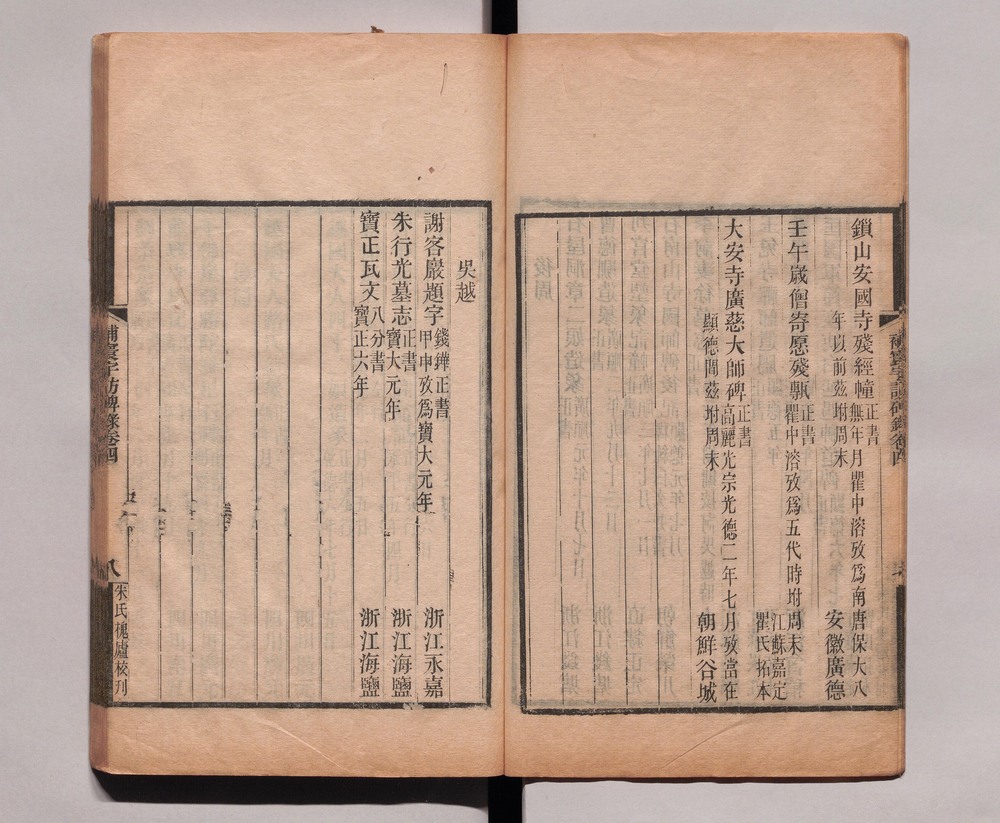 鎖山安國寺殘經幢正書無年月瞿中溶攷爲南唐保大八
年以前茲坿周末
安徽廣德
壬午歲僧寄愿殘甎正書瞿中溶攷爲五代時坿周末
江蘇嘉定
瞿氏拓本
大安寺廣慈大師碑正書高麗光宗光德二年七月攷當在
顯德間茲坿周末
朝鮮谷城
吳越
謝客巖題字錢鏵正書甲申攷爲寶大元年
浙江永嘉
朱行光墓志正書寶大元年
浙江海鹽
寶正瓦文八分書寶正六年
浙江海鹽
補寰宇訪碑錄卷四
八
朱氏槐廬校刊